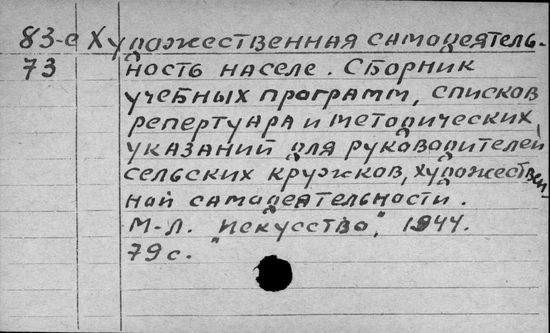 83-е Художественная самодеятель-
73 ность на селе. Сборник
учебных программ, списков
репертуара и методических
указаний для руководителей
сельских кружков, художествен-
ной самодеятельности.
М-Л. "Искусство", 1944.
79 с.